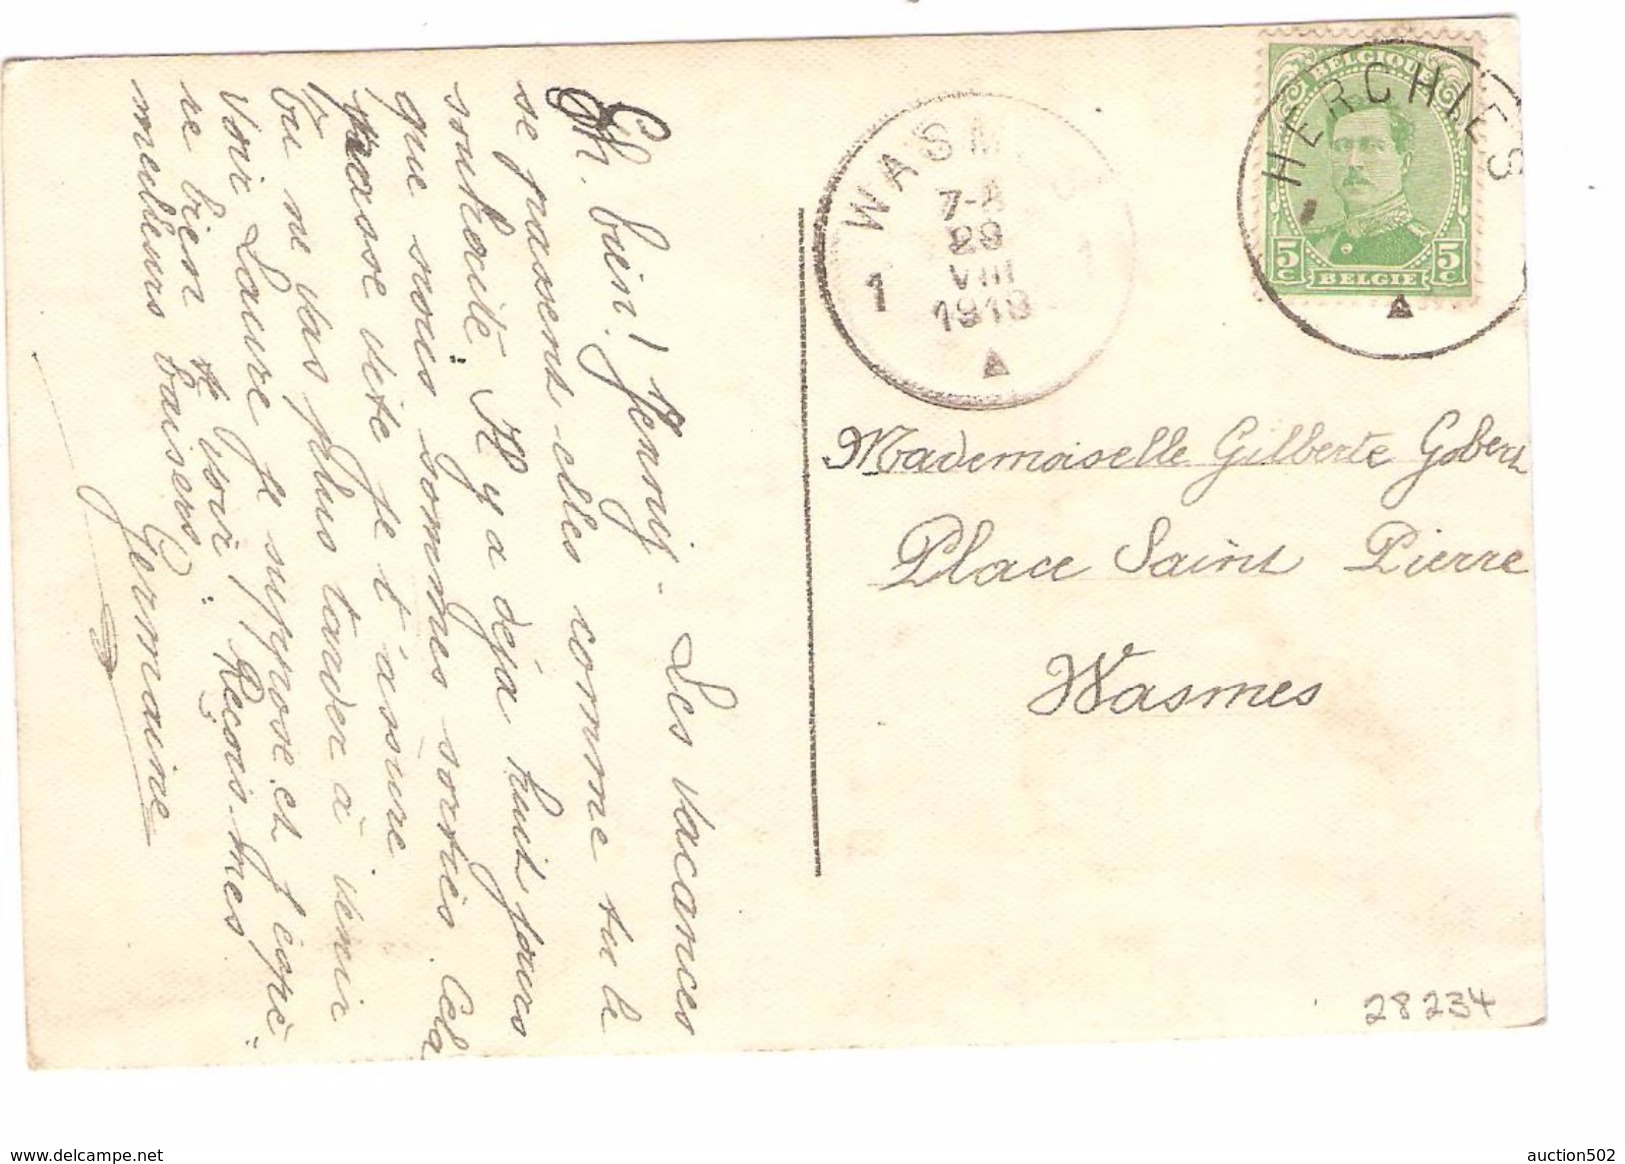 Eh. bien! Jenny - Les vacances
se passent elles comme tu le
souhaite. Il y a déja huit jours
que nous sommes sorties. Cela
passe vite je t'assure
Tu ne vas plus tarder à venir
voir Laure je suppose et j'espè-
re bien te voir! Reçois-mes
meilleurs baisers.
Germaine
WASM
7-8
29
VIII
1919
1
1
HERCHIES
BELGIQUE
5c
5c
BELGIE
Mademoiselle Gilberte Gobert
Place Saint Pierre
Wasmes
28234
www.delcampe.net
auction502